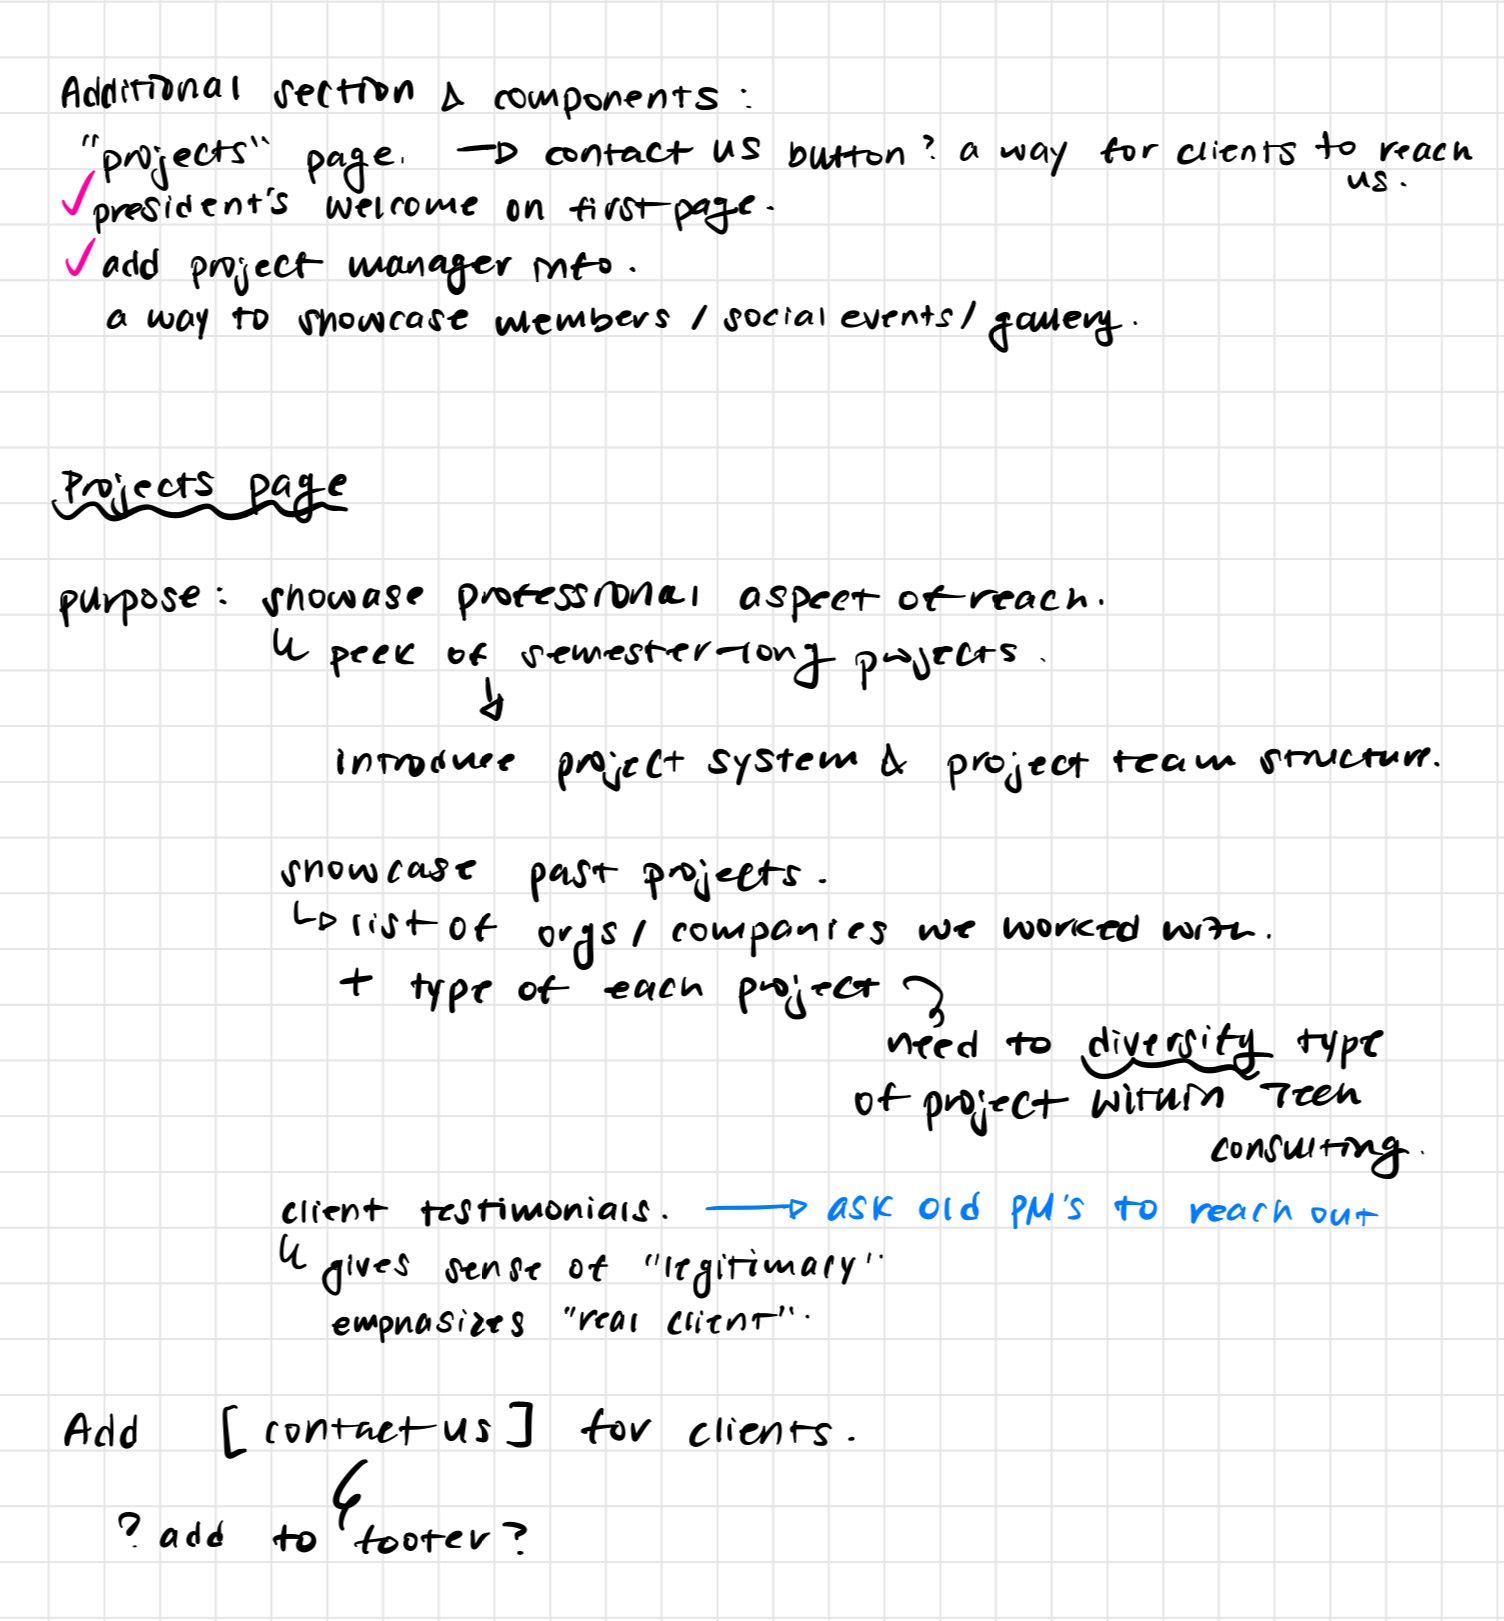 Additional section & components:
"projects" page. → contact us button? a way for clients to reach
us.
✓ president's welcome on first page.
✓ add project manager info.
a way to showcase members / social events / gallery.
Projects page
purpose: showase professional aspect of reach.
↳ peek of semester-long projects.
↓
introduce project system & project team structure.
showcase past projects.
↳ list of orgs / companies we worked with.
+ type of each project
need to diversity type
of project within Tech
consulting.
client testimonials. → ask old PM's to reach out
↳ gives sense of "legitimacy".
emphasizes "real client".
Add [contact us] for clients.
? add to footer?